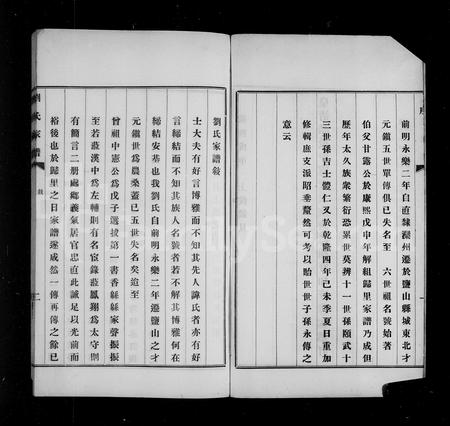 前明永樂二年自直隸灤州遷於鹽山縣城東北才
元鎮五世單傳俱已失名至 六世祖名號始著
伯父甘露公於康熙戊申年解組歸里家譜乃成但
歷年太久族衆繁衍恐累世莫辨十一世孫頤武十
三世孫吉士體仁又於乾隆四年己未季夏日重加
修輯庶支派昭垂釐然可考以貽世世子孫永傳之
意云
劉氏家譜敍
士大夫有好言博雅而不知其先人諱氏者亦有好
言締結而不知其族人名號者若不解其博雅何在
締結安基也我劉氏自前明永樂二年遷鹽山之才
元鎮世爲農桑蓋已五世失名矣追至
曾祖中憲公爲戊子選拔第一書香緜緜家聲振振
至若蒞漢中爲左輔則有名宦錄蒞鳳翔爲太守則
有簡言二册處鄉義氣居官忠直此誠足以光前而
裕後也於歸里之日家譜遂成然一傳再傳之餘已
劉氏家譜
敍
二